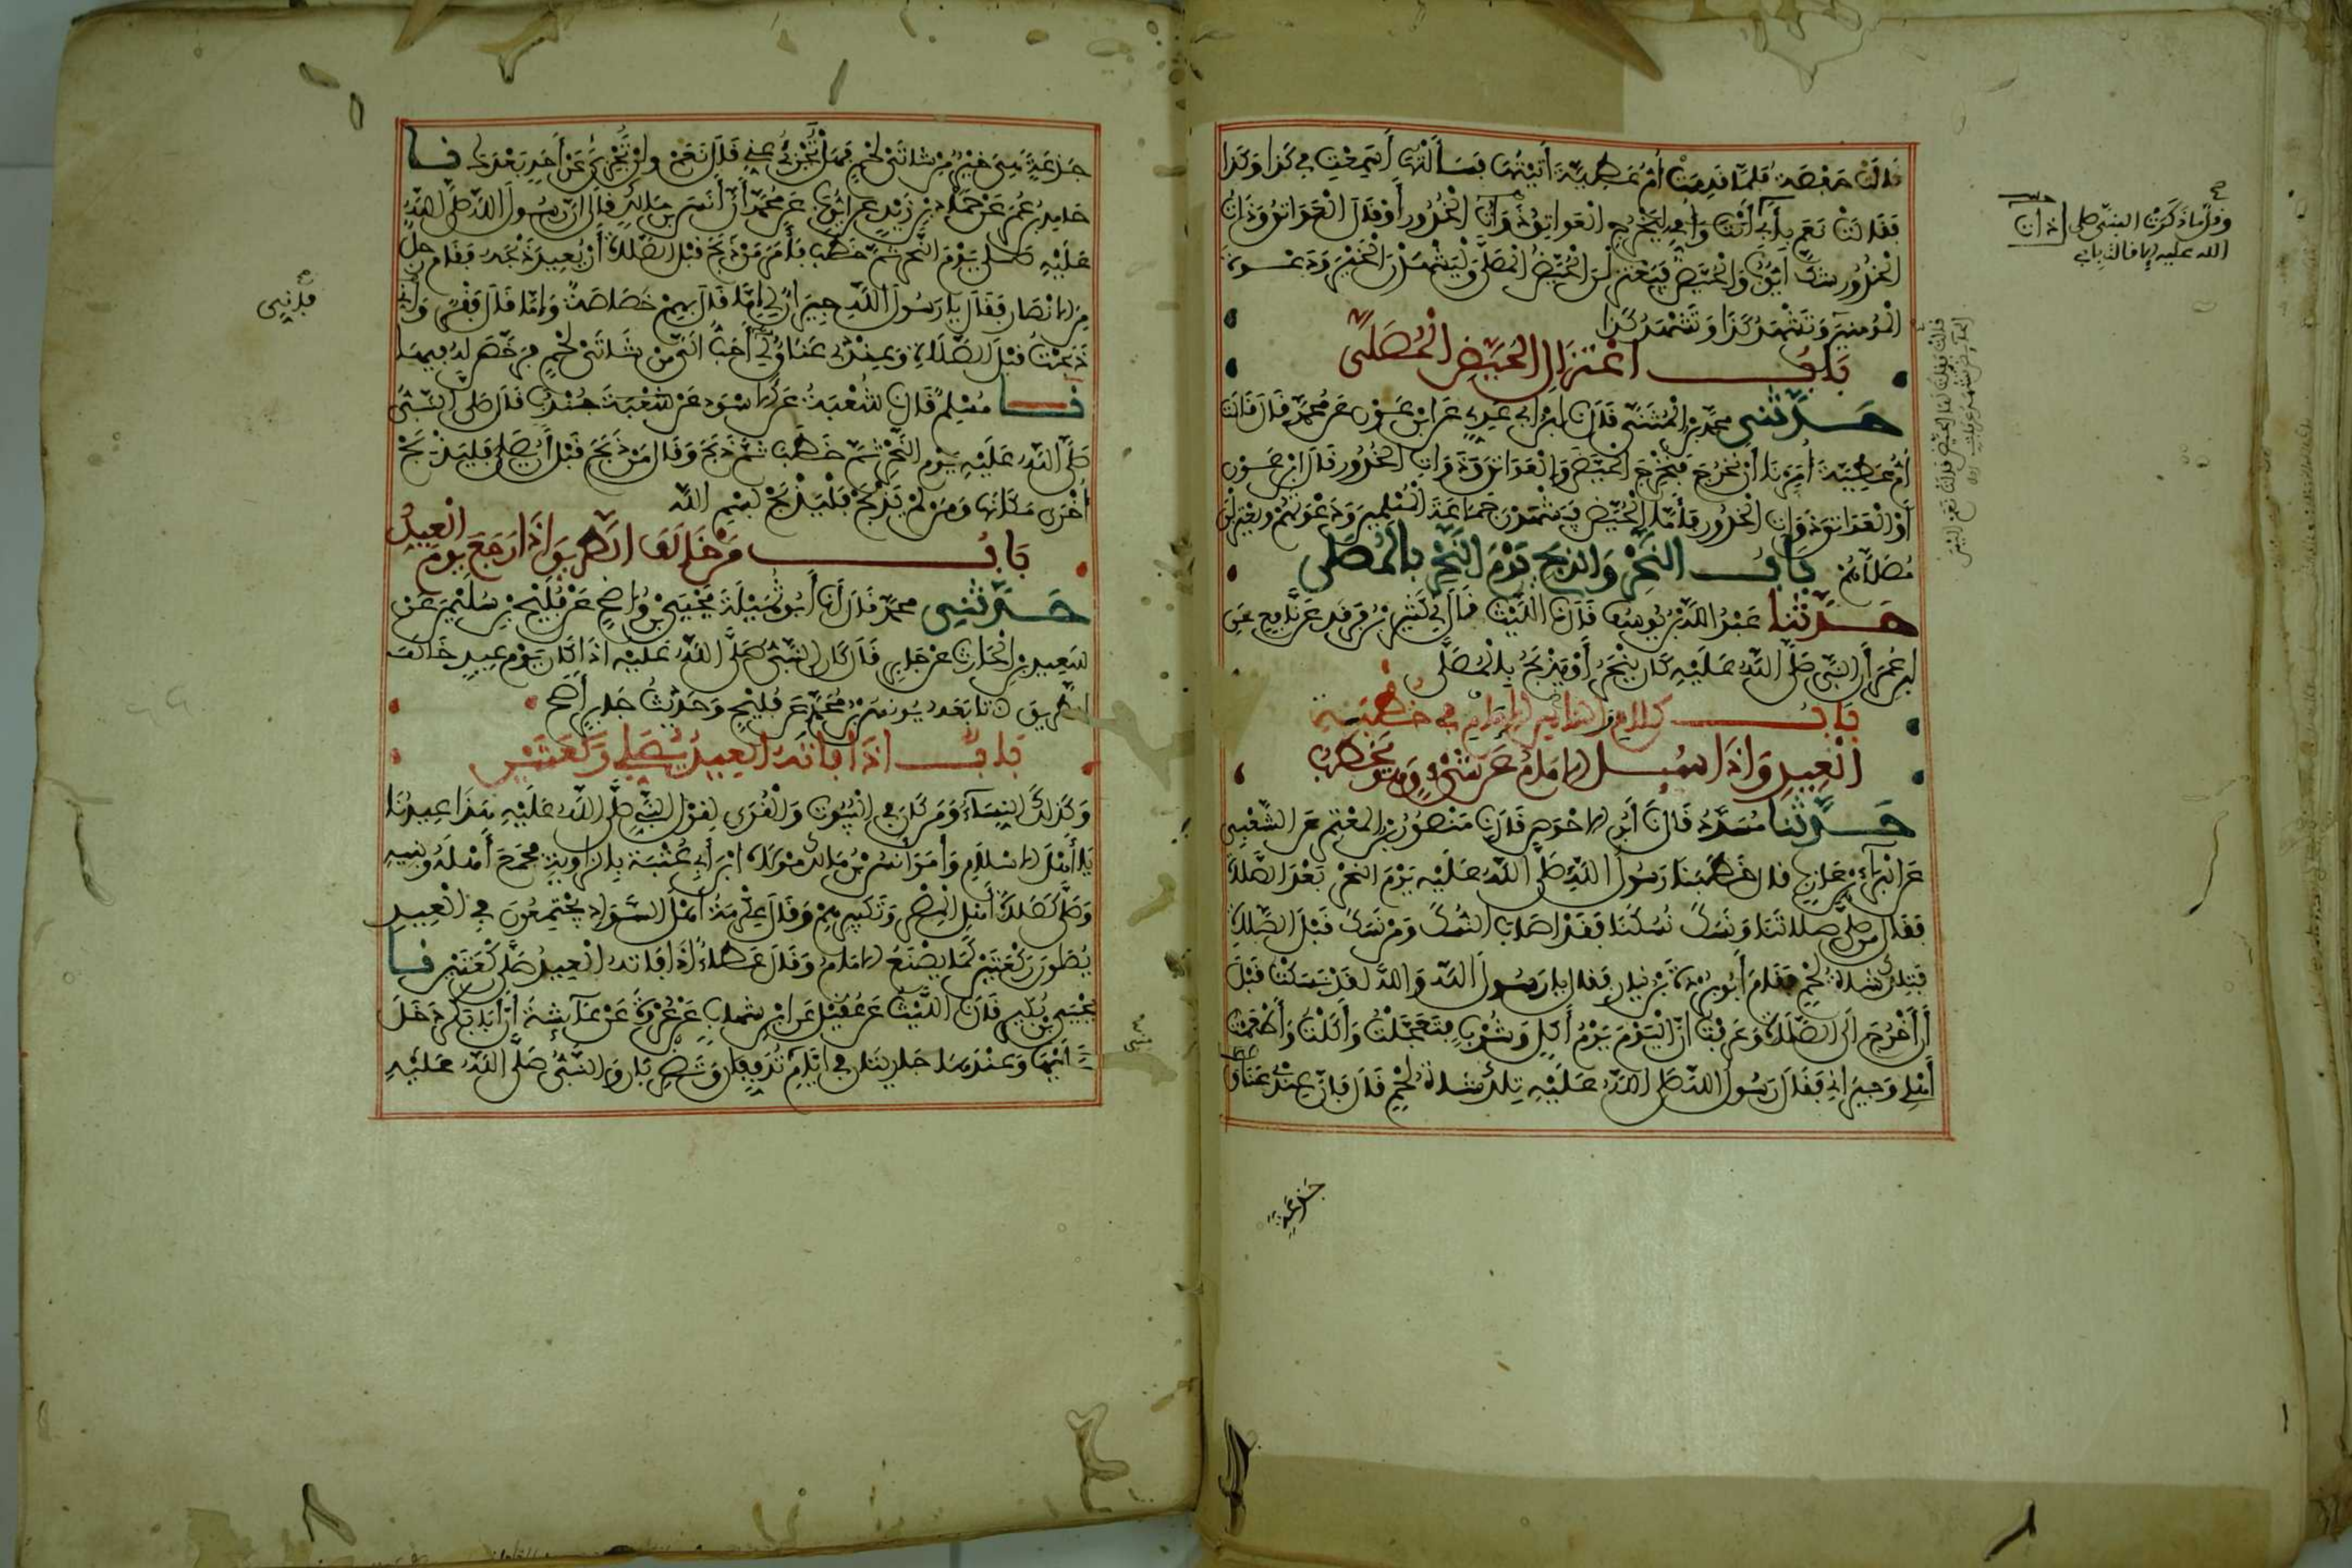 قالت حفصة فلما قدمت أم عطية أتيتها فسألتها أسمعت في كذا وكذا
فقالت نعم بأبي
الخدور شك أيوب والحيض فيعتزلن الحيض المصلى وليشهدن الخير ودعوة
المومنين وتشهد كذا وتشهد كذا
باب اعتزال الحيض المصلى
حدثني محمد بن المثنى قال نا ابن أبي عدي عن ابن عون عن محمد قال قالت
أم عطية أمرنا أن نخرج فنخرج الحيض والعواتق وذوات الخدور قال ابن عون
أو العواتق ذوات الخدور فأما الحيض فيشهدن جماعة المسلمين ودعوتهم ويعتزلن
مصلاهم باب النحر والذبح يوم النحر بالمصلى
حدثنا عبد الله بن يوسف قال نا الليث قال ني كثير بن فرقد عن نافع عن
ابن عمر أن النبي صلى الله عليه كان ينحر أو يذبح بالمصلى
باب كلام الناس الإمام في خطبة
العيد وإذا سيل الإمام عن شيء وهو يخطب
حدثنا مسدد قال نا أبو الأحوص قال نا منصور بن المعتمر عن الشعبي
عن البراء بن عازب قال خطبنا رسول الله صلى الله عليه يوم النحر بعد الصلاة
فقال من صلى صلاتنا ونسك نسكنا فقد أصاب النسك ومن نسك قبل الصلاة
فتلك شاة لحم فقام أبو بردة بن نيار فقال يا رسول الله والله لقد نسكت قبل
أن أخرج إلى الصلاة وعرفت أن اليوم يوم أكل وشرب فتعجلت وأكلت وأطعمت
أهلي وجيراني فقال رسول الله صلى الله عليه تلك شاة لحم قال فإن عندي عناق
جذعة
وقل ما ذكرت النبي صلى
الله عليه إلا قالت بأبي
جذعة هي خير من شاتي لحم فهل تجزي عني قال نعم ولن تجزي عن أحد بعدك نا
حامد بن عمر عن حماد بن زيد عن أيوب عن محمد أن أنس بن مالك قال إن رسول الله صلى الله
عليه صلى يوم النحر ثم خطب فأمر من ذبح قبل الصلاة أن يعيد ذبحه فقام رجل
من الأنصار فقال يا رسول الله جيران لي إما قال بهم خصاصة وإما قال فقر وإني
ذبحت قبل الصلاة وعندي عناق لي أحب الي من شاتي لحم فرخص له فيها
نا مسلم قال نا شعبة عن الأسود عن شعبة جندب قال صلى النبي
صلى الله عليه يوم النحر ثم خطب ثم ذبح وقال من ذبح قبل أن يصلي فليذبح
أخرى مكانها ومن لم يذبح فليذبح بسم الله
باب من خالف الطريق إذا رجع يوم العيد
حدثني محمد قال نا أبو تميلة يحيى بن واضح عن فليح بن سليمن عن
سعيد بن الحارث عن جابر قال كان النبي صلى الله عليه إذا كان يوم عيد خالف
الطريق تابعه يونس بن محمد عن فليح وحديث جابر أصح
باب إذا فاته العيد يصلي ركعتين
وكذلك النساء ومن كان في البيوت والقرى لقول النبي صلى الله عليه هذا عيدنا
يا أهل الإسلام وأمر أنس بن مالك مولاه ابن أبي عتبة بالزاوية فجمع أهله وبنيه
وصلى كصلاة أهل المصر وتكبيرهم وقال عكرمة أهل السواد يجتمعون في العيد
يصلون ركعتين كما يصنع الإمام وقال عطاء إذا فاته العيد صلى ركعتين نا
يحيى بن بكير قال نا الليث عن عقيل عن ابن شهاب عن عروة عن عائشة أن أبا بكر دخل
عليها وعندها جاريتان في أيام تدففان وتضربان والنبي صلى الله عليه